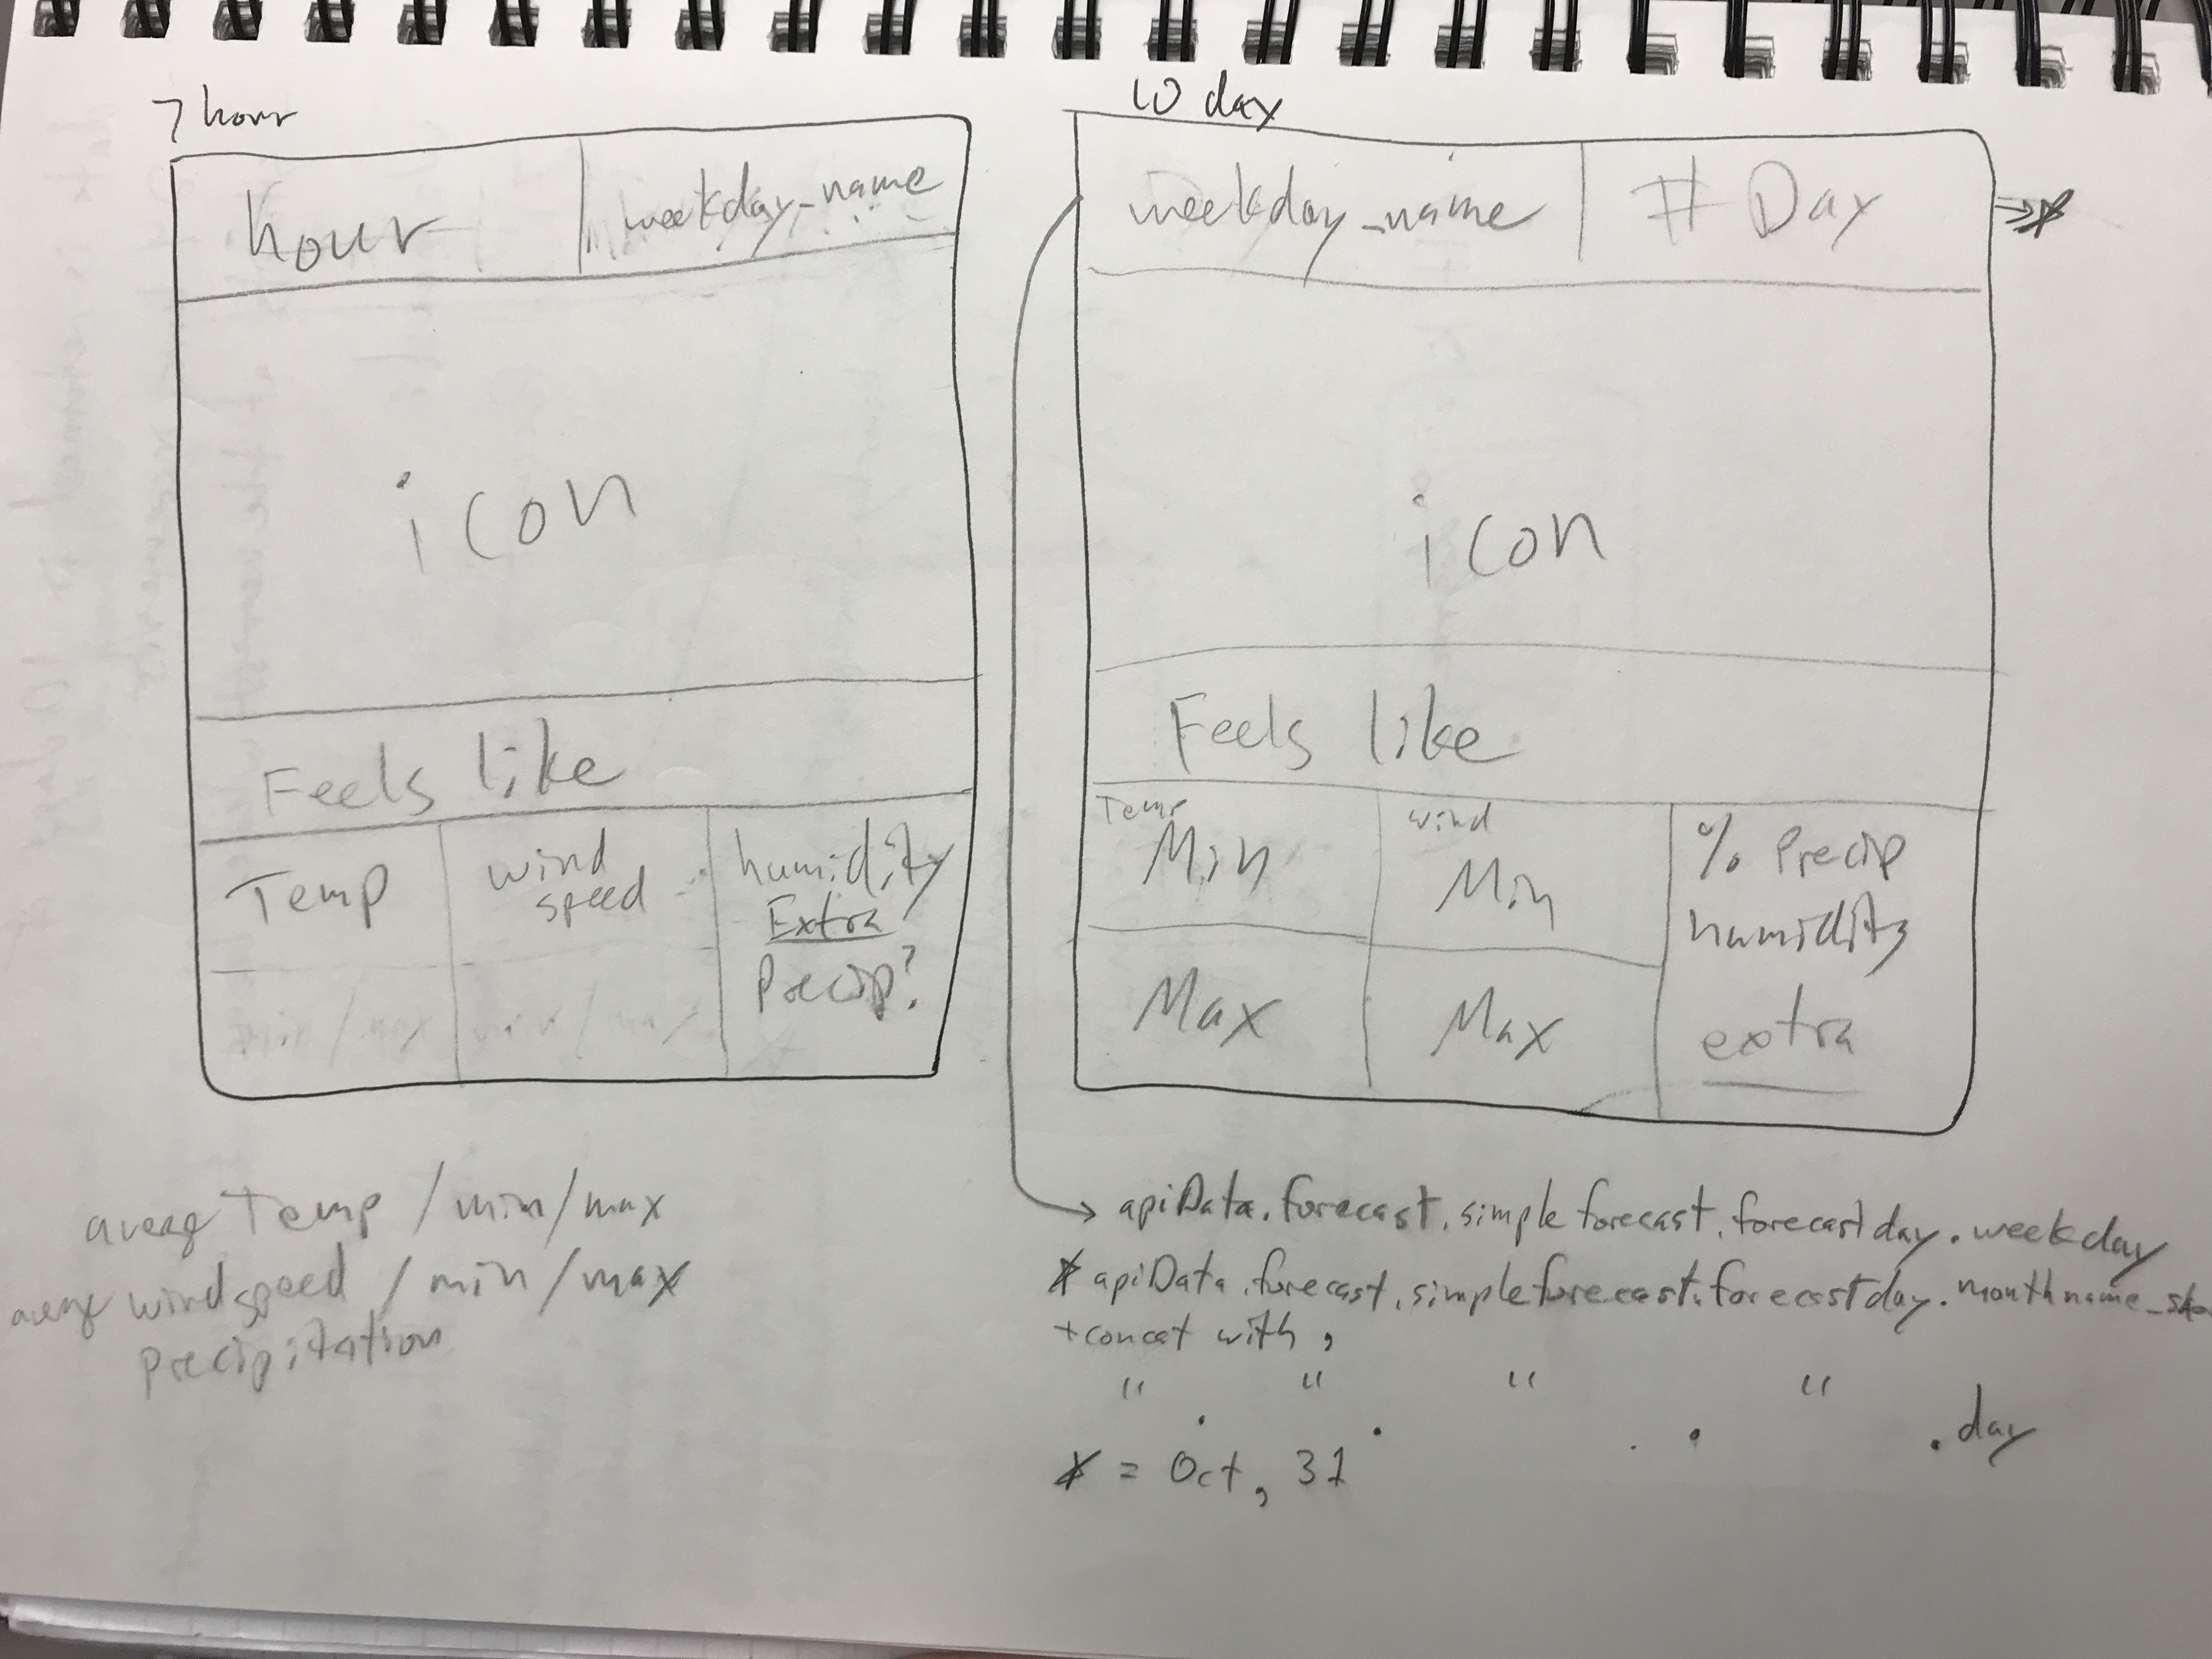 7 hour
hour
weekday_name
icon
Feels like
Temp
wind
speed
humidity
Extra
Precip?
min/max
min/max
average Temp / min/max
average windspeed / min/max
Precipitation
10 day
weekday_name
# Day
icon
Feels like
Temp
Min
Max
wind
Min
Max
% Precip
humidity
extra
apiData.forecast.simpleforecast.forecastday.weekday
* apiData.forecast.simpleforecast.forecastday.monthname_sho
+concat with ,
" " " "
. . . . .day
* = Oct, 31